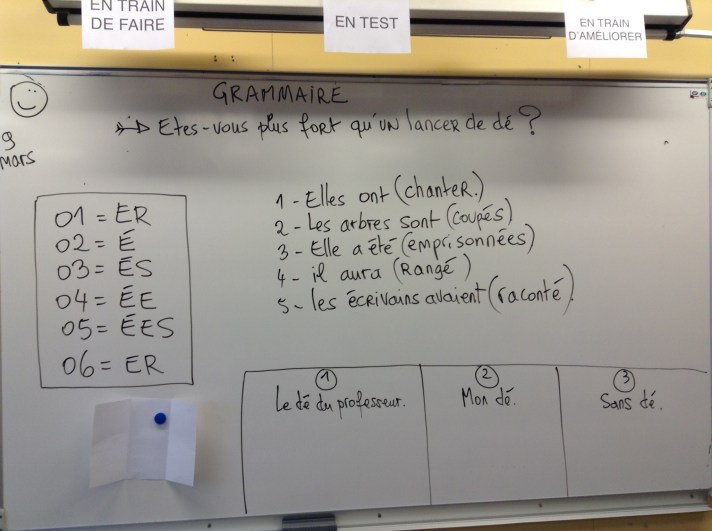 EN TRAIN
DE FAIRE
EN TEST
EN TRAIN
D'AMÉLIORER
GRAMMAIRE
Etes-vous plus fort qu'un lancer de dé ?
9
mars
01 = ER
02 = É
03 = ÉS
04 = ÉE
05 = ÉES
06 = ER
1 - Elles ont (chanter.)
2 - Les arbres sont (coupés)
3 - Elle a été (emprisonnées)
4 - il aura (Rangé)
5 - les écrivains avaient (raconté).
1
Le dé du professeur.
2
Mon dé.
3
Sans dé.